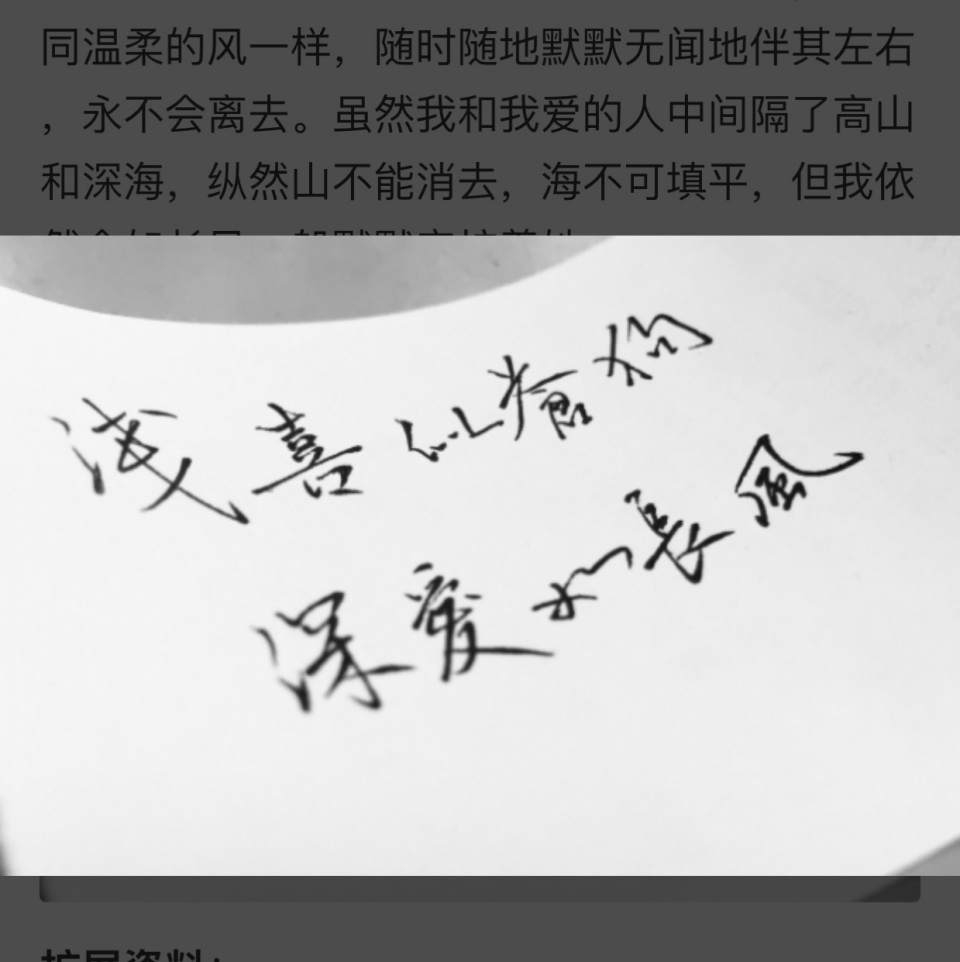 同温柔的风一样，随时随地默默无闻地伴其左右
，永不会离去。虽然我和我爱的人中间隔了高山
和深海，纵然山不能消去，海不可填平，但我依
浅喜似苍狗
深爱如長風
扩展资料：